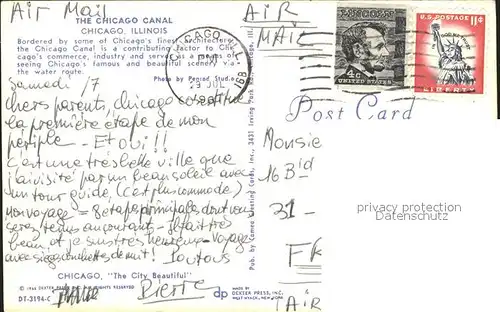 Air Mail
AIR
MAIL
THE CHICAGO CANAL
CHICAGO, ILLINOIS
Bordered by some of Chicago's finest architecture,
the Chicago Canal is a contributing factor to Chi-
cago's commerce, industry and serves as a means of
seeing Chicago's famous and beautiful scenery via
the water route.
Photo by Penrod Studio
Samedi 7
chers parents, Chicago
la première étape de mon
périple - Et oui!!
C'est une très belle ville que
j'ai visité par un beau soleil avec
un tour guidé, (c'est plus commode)
mon voyage = 8 étapes principales dont vous
serez tenus au courant - Il fait très
beau et je suis très heureux - Voyage
avec nuit! Poutous
Pierre
CHICAGO, "The City Beautiful"
DT-3194-C
MADE BY
DEXTER PRESS, INC.
WEST NYACK, NEW YORK
dp
Pub. by Cameo Greeting Cards, Inc., 3431 Irving Park
CHICAGO
4c UNITED STATES
U.S. POSTAGE 11¢
LIBERTY
Post Card
Monsie
16 Bd
31-
AIR
passionforpostcards
Datenschutz